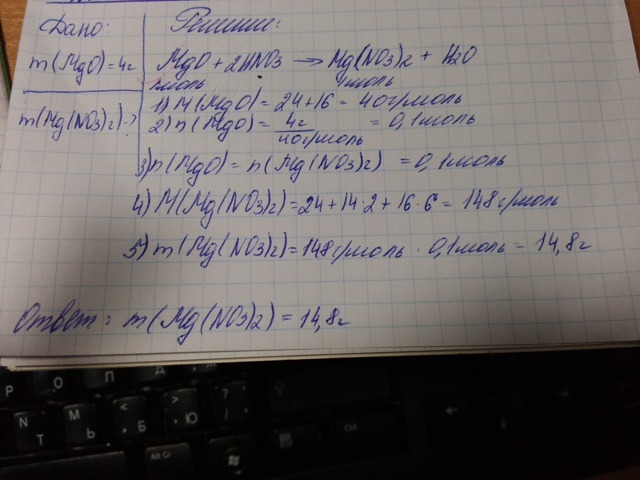 Дано: Решение:
m(MgO)=4г
MgO + 2HNO3 → Mg(NO3)2 + H2O
1моль 1моль
m(Mg(NO3)2)-?
1) M(MgO) = 24+16 = 40г/моль
2) n(MgO) = 4г/40г/моль = 0,1моль
3) n(MgO) = n(Mg(NO3)2) = 0,1моль
4) M(Mg(NO3)2) = 24+14·2+16·6 = 148г/моль
5) m(Mg(NO3)2) = 148г/моль · 0,1моль = 14,8г
Ответ: m(Mg(NO3)2) = 14,8г
Р О Л Д
N Т М Ь < Б > Ю ? / .
Alt Gr Ctrl